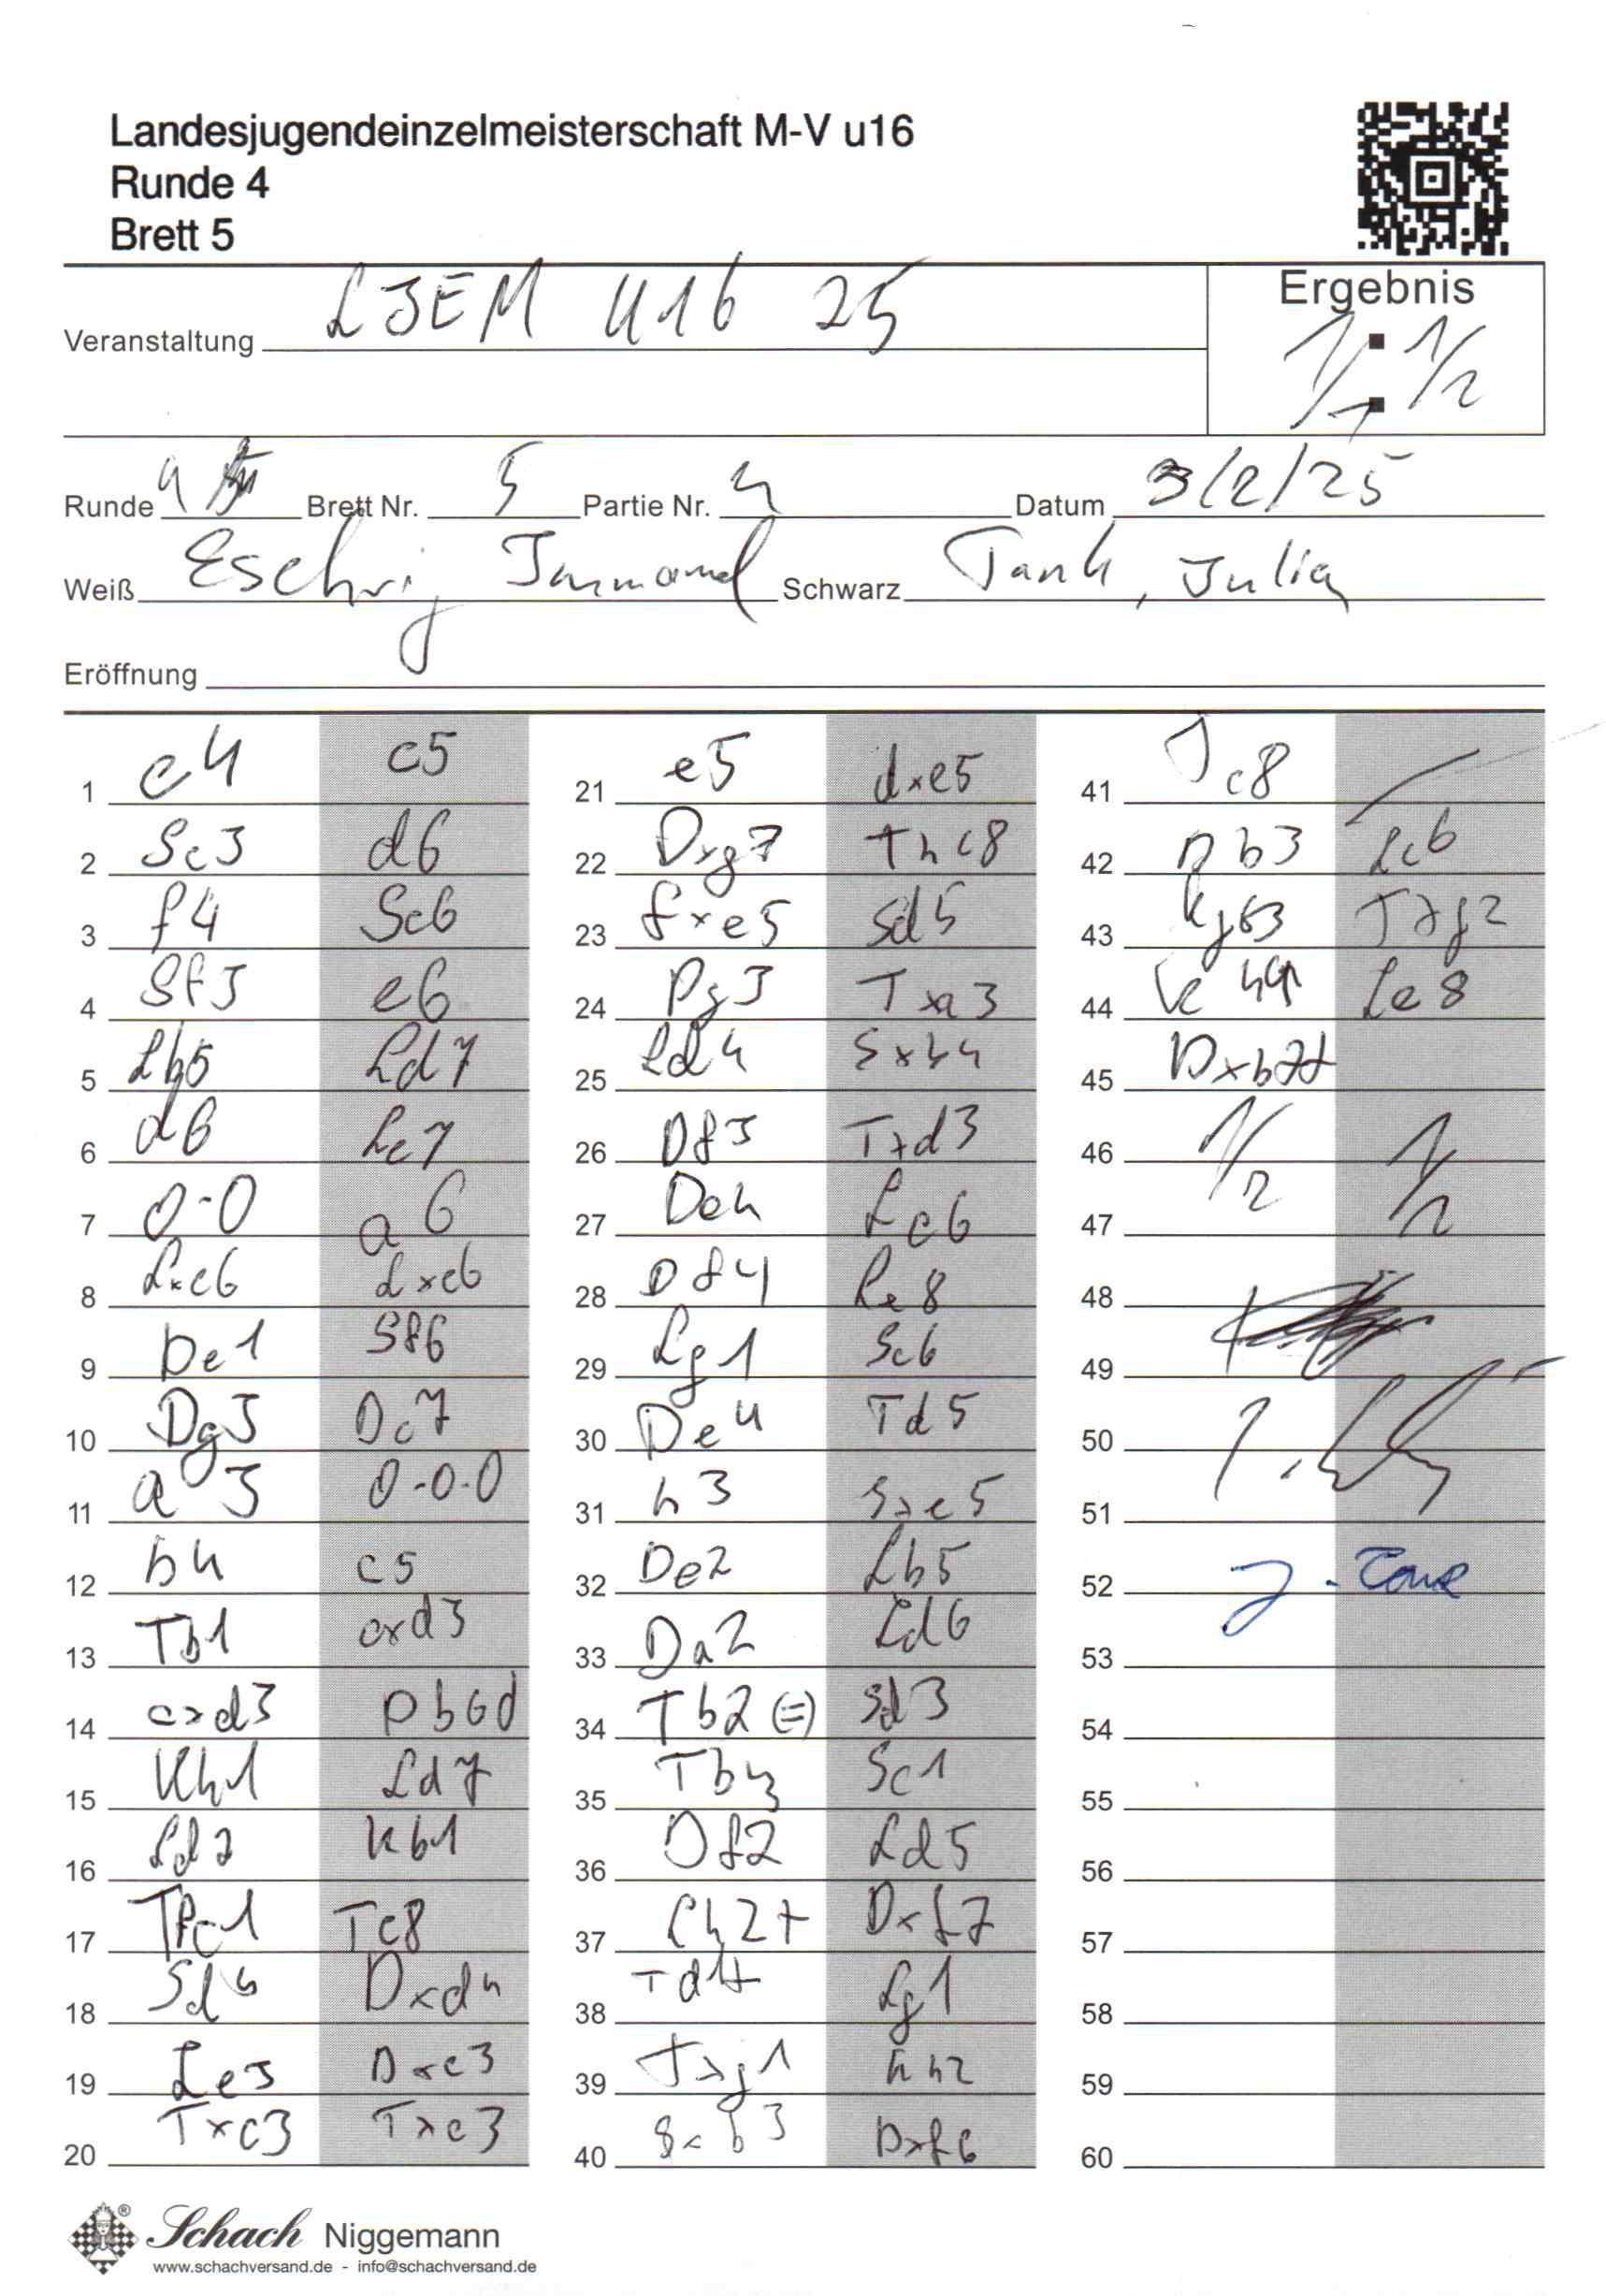 Landesjugendeinzelmeisterschaft M-V u16
Runde 4
Brett 5
Ergebnis
1/2 : 1/2
Veranstaltung LJEM U16 25
Runde 4 Brett Nr. 5 Partie Nr. 4 Datum 3/2/25
Weiß Eschrig Immanuel Schwarz Tank, Julia
Eröffnung
1 e4 c5
2 Sc3 d6
3 f4 Sc6
4 Sf3 e6
5 Lb5 Ld7
6 d6 Le7
7 0-0 a6
8 Lxc6 Lxc6
9 De1 Sf6
10 Dg3 Dc7
11 a3 0-0-0
12 b4 c5
13 Tb1 cxd3
14 cxd3 Db6d
15 Kh1 Ld7
16 Ld2 Kb1
17 Tfc1 Tc8
18 Sd4 Dxd4
19 Le3 Dxc3
20 Txc3 Txc3
21 e5 dxe5
22 Dxg7 Thc8
23 fxe5 Sd5
24 Dg3 Txa3
25 Ld4 Sxb4
26 Df3 Txd3
27 De4 Lc6
28 Df4 Le8
29 Lg1 Sc6
30 De4 Td5
31 h3 Sxe5
32 De2 Lb5
33 Da2 Ld6
34 Tb2 (=) Sd3
35 Tb3 Sc1
36 Df2 Ld5
37 Lh2+ Dxf7
38 Td1+ Lg1
39 Txg1 Kh2
40 Sxb3 Dxf6
41 Tc8
42 Db3 Lc6
43 Kg3 Txg2
44 Le8
45 Dxb7+
46 1/2 1/2
47
48
49
50
51
52 J. Tank
53
54
55
56
57
58
59
60
Schach Niggemann
www.schachversand.de - info@schachversand.de